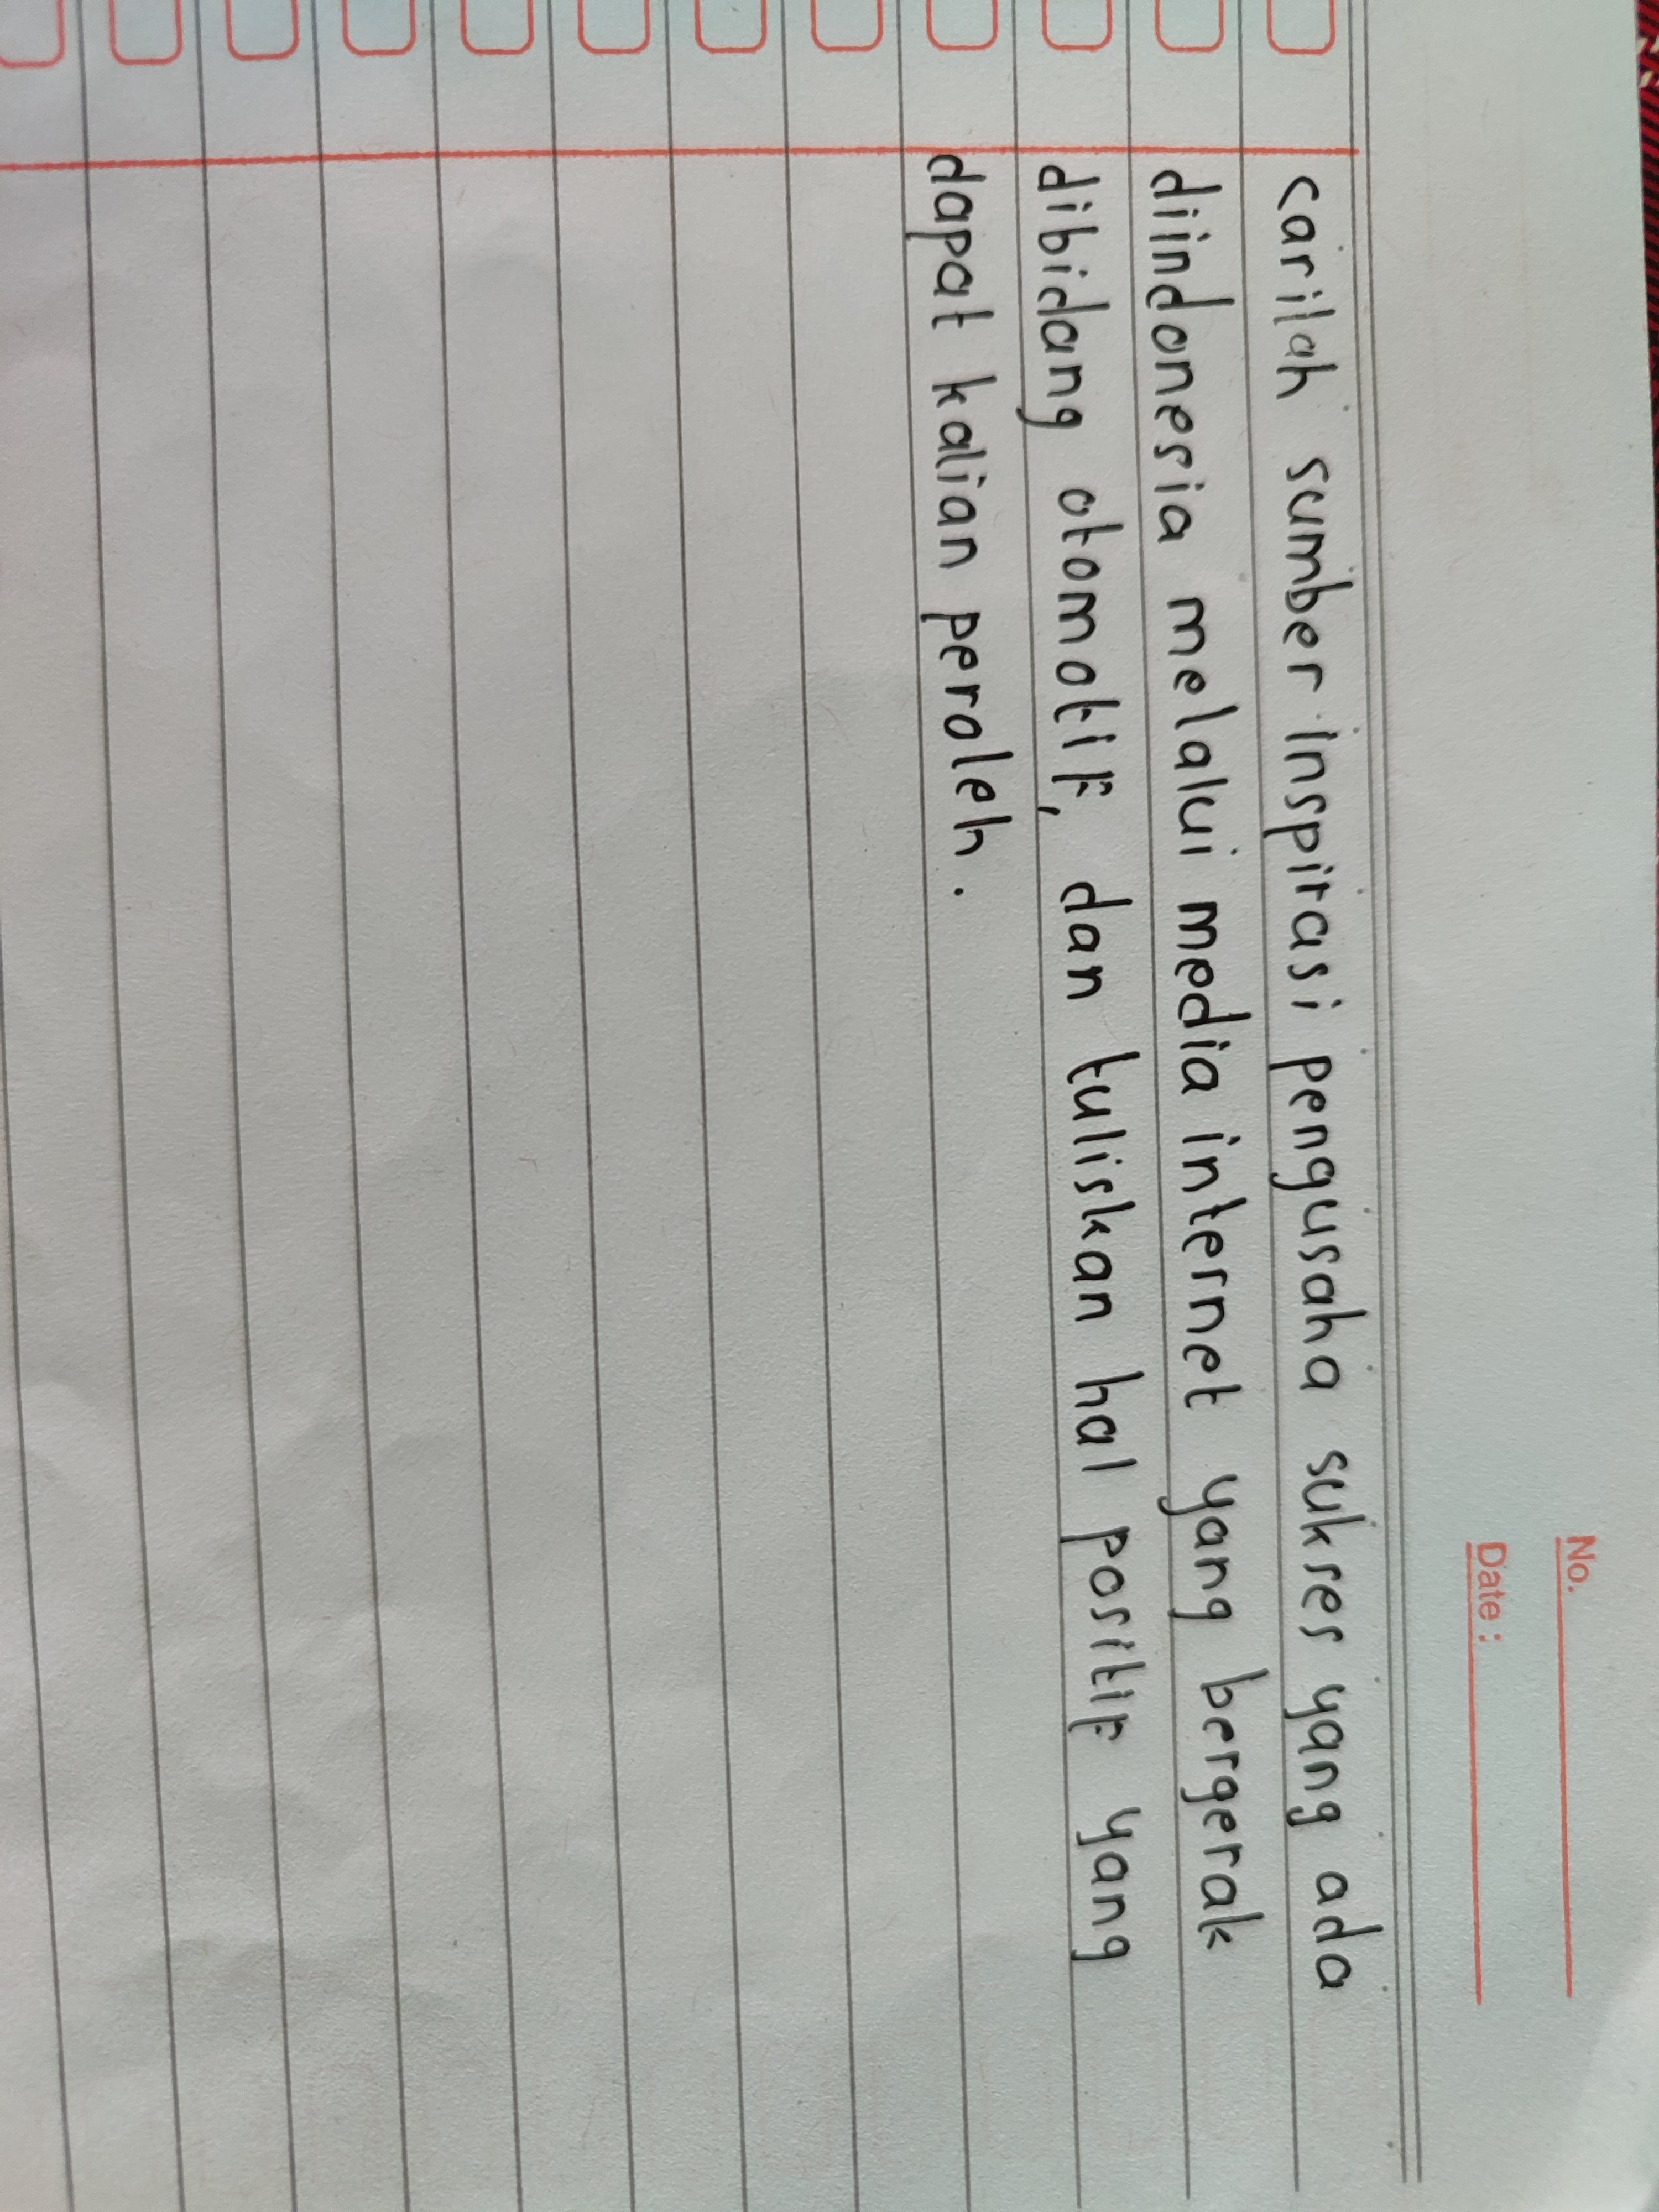 No.
Date :
carilah sumber inspirasi pengusaha sukses yang ada
diindonesia melalui media internet yang bergerak
dibidang otomotif, dan tuliskan hal positif yang
dapat kalian peroleh.